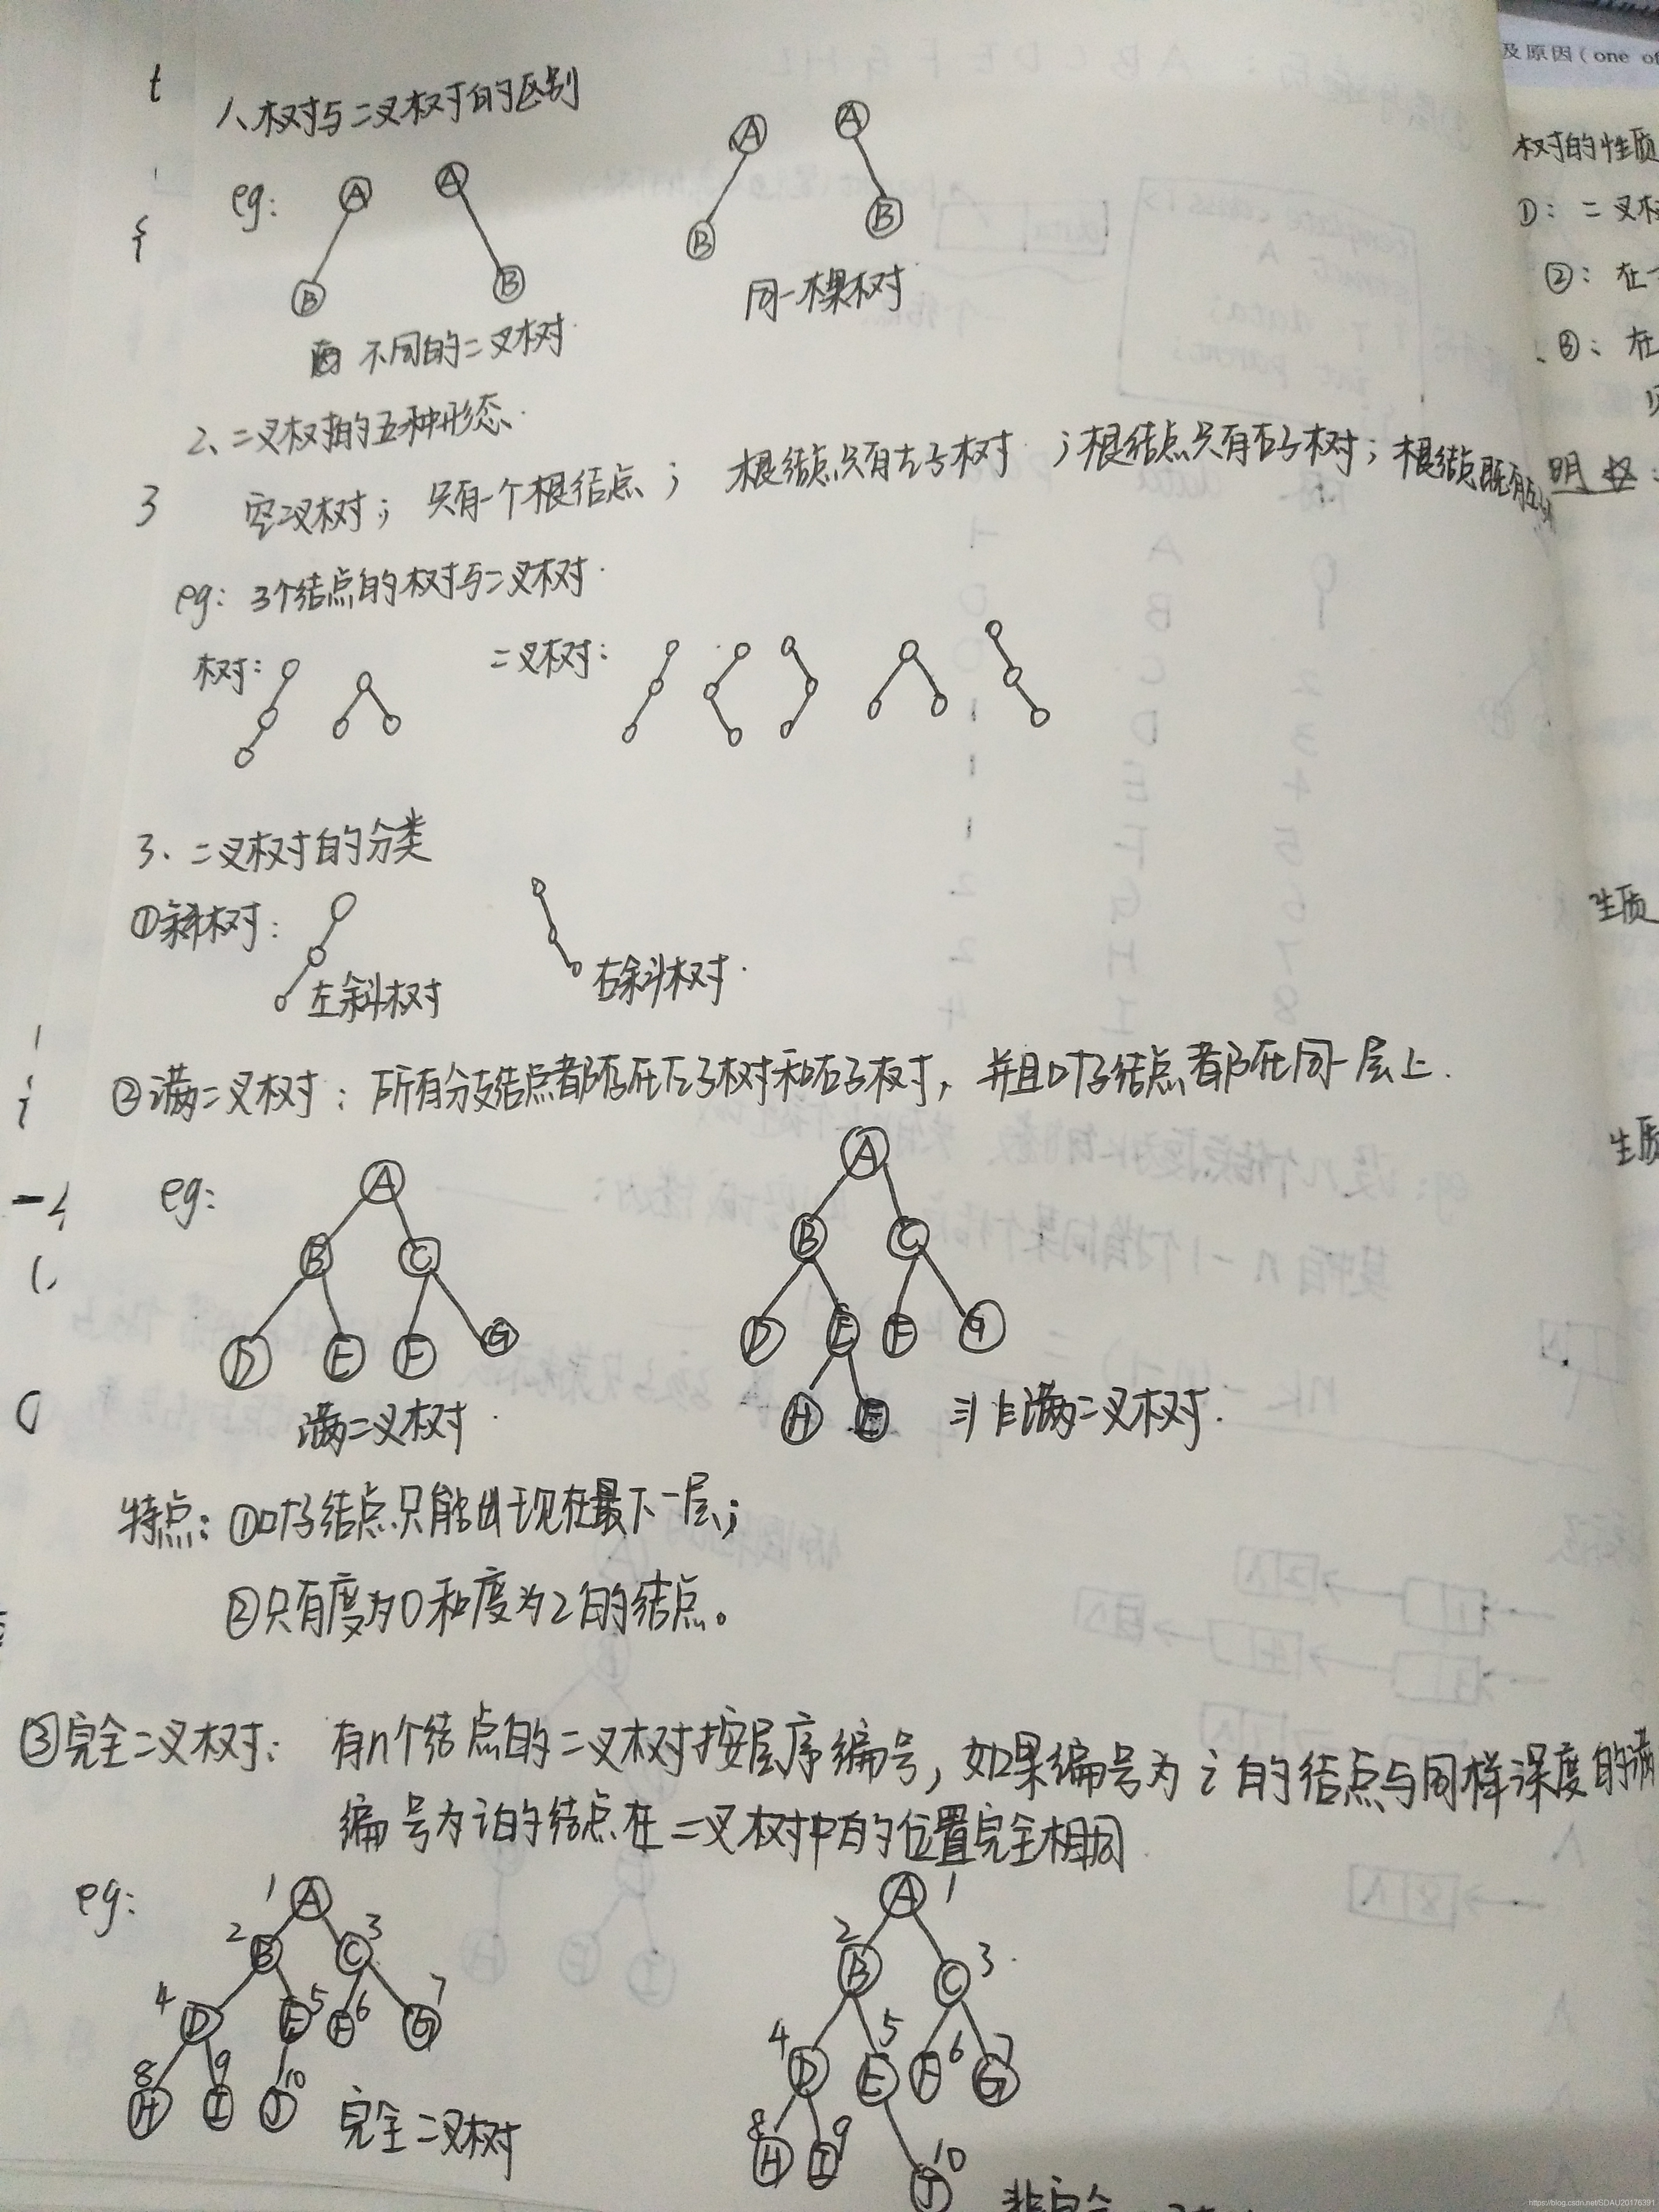 1、树与二叉树的区别
eg:
A A A A
B B B B
不同的二叉树
同一棵树
2、二叉树的五种形态
空二叉树; 只有一个根结点; 根结点只有左子树; 根结点只有右子树; 根结点既有左
eg: 3个结点的树与二叉树
树: 二叉树:
3、二叉树的分类
①斜树:
左斜树 右斜树
②满二叉树: 所有分支结点都存在左子树和右子树, 并且叶子结点都在同一层上.
eg:
A A
B C B C
D E F G D E F G
H E
满二叉树 非满二叉树.
特点: ①叶子结点只能出现在最下一层;
②只有度为0和度为2的结点。
③完全二叉树: 有n个结点的二叉树按层序编号, 如果编号为i的结点与同样深度的满
编号为i的结点在二叉树中的位置完全相同
eg:
1 A A 1
2 B C 3 2 B C 3
4 D E 5 F 6 G 7 4 D E 5 F 6 G 7
8 H 9 I 10 J 8 H I 9 J 10
完全二叉树
非完全
及原因(one of
树的性质
①: 二叉树
②: 在
③: 在
明
性质
性质
https://blog.csdn.net/SDAU20176391